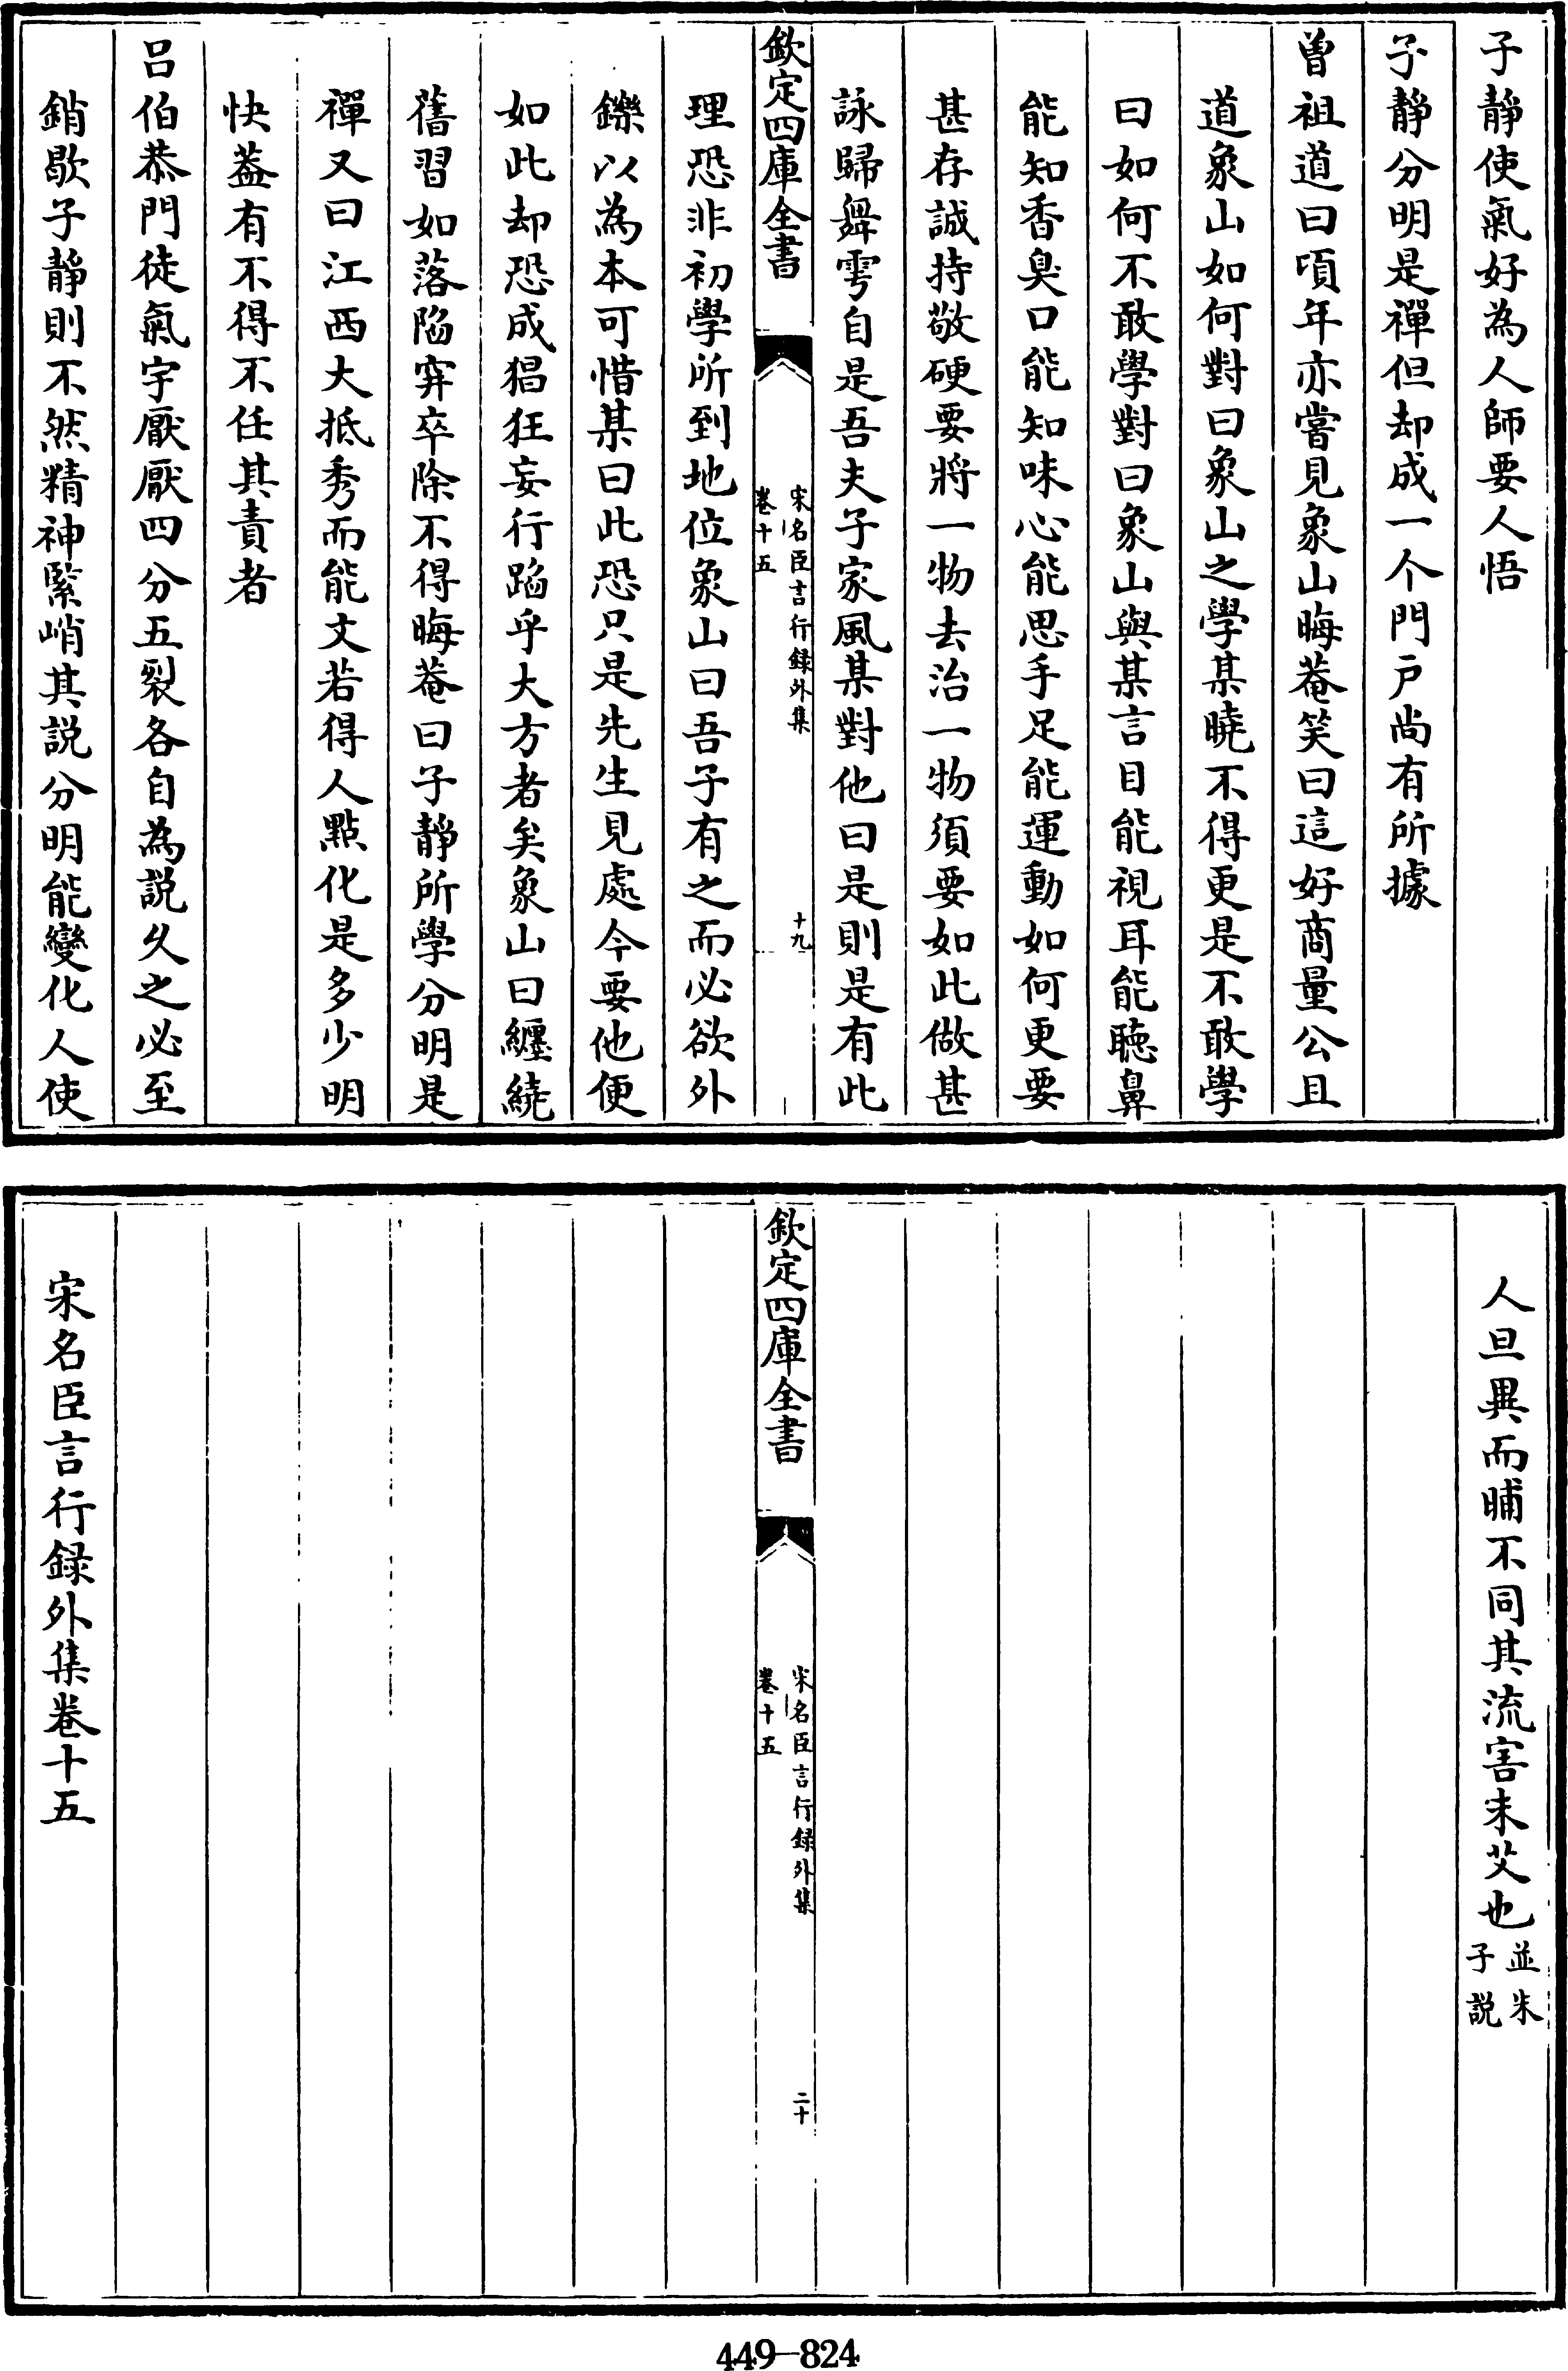 子靜使氣好為人師要人悟
子靜分明是禪但却成一个門户尚有所據
曾祖道曰項年亦嘗見象山晦菴笑曰這好商量公且
道象山如何對曰象山之學某曉不得更是不敢學
曰如何不敢學對曰象山與某言目能視耳能聴鼻
能知香臭口能知味心能思手足能運動如何更要
甚存誠持敬硬要將一物去治一物須要如此做甚
詠歸舞雩自是吾夫子家風某對他曰是則是有此
欽定四庫全書
宋名臣言行録外集
卷十五
十九
理恐非初學所到地位象山曰吾子有之而必欲外
鑠以為本可惜某曰此恐只是先生見處今要他便
如此却恐成猖狂妄行蹈乎大方者矣象山曰纏繞
舊習如落陷穽卒除不得晦菴曰子靜所學分明是
禪又曰江西大抵秀而能文若得人點化是多少明
快葢有不得不任其責者
吕伯恭門徒氣宇厭厭四分五裂各自為説久之必至
銷歇子靜則不然精神緊峭其説分明能變化人使
人旦異而晡不同其流害未艾也
並朱
子説
欽定四庫全書
宋名臣言行録外集
卷十五
二十
宋名臣言行録外集卷十五
449-824